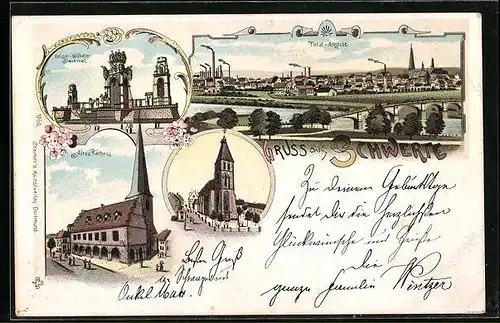 Kaiser-Wilhelm-
Denkmal
Total-Ansicht
GRUSS aus SCHWERTE
Altes Rathaus
Cramer's Kunstverlag, Dortmund.
Zu deinem Geburtstage
sendet dir die herzlichsten
Glückwünsche und Grüße
die
ganze Familie
Besten Gruß
Onkel